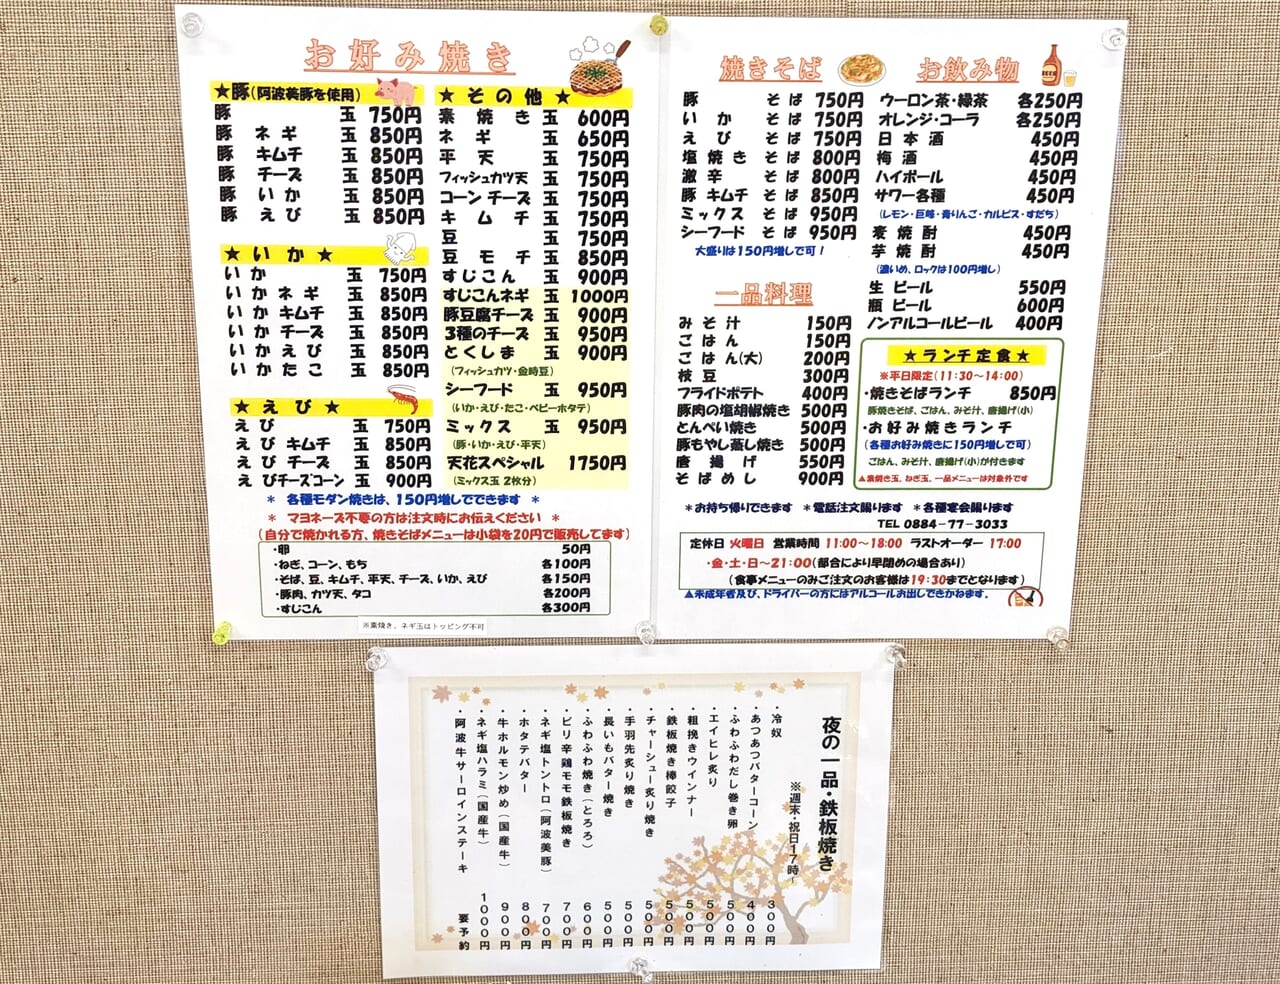 お好み焼き
★豚(阿波美豚を使用)
豚 玉 750円
豚 ネギ 玉 850円
豚 キムチ 玉 850円
豚 チーズ 玉 850円
豚 いか 玉 850円
豚 えび 玉 850円
★ い か ★
いか 玉 750円
いか ネギ 玉 850円
いか キムチ 玉 850円
いか チーズ 玉 850円
いか えび 玉 850円
いか たこ 玉 850円
★ え び ★
えび 玉 750円
えび キムチ 玉 850円
えび チーズ 玉 850円
えび チーズコーン 玉 900円
★ そ の 他 ★
素焼き 玉 600円
ネギ 玉 650円
平天 玉 750円
フィッシュカツ天 玉 750円
コーン チーズ 玉 750円
キムチ 玉 750円
豆 玉 750円
豆モチ 玉 850円
すじこん 玉 900円
すじこんネギ 玉 1000円
豚豆腐チーズ 玉 900円
3種のチーズ 玉 950円
とくしま 玉 900円
(フィッシュカツ・金時豆)
シーフード 玉 950円
(いか・えび・たこ・ベビーホタテ)
ミックス 玉 950円
(豚・いか・えび・平天)
天花スペシャル 1750円
(ミックス玉 2枚分)
* 各種モダン焼きは、150円増しでできます *
* マヨネーズ不要の方は注文時にお伝えください *
(自分で焼かれる方、焼きそばメニューは小袋を20円で販売してます)
・卵 50円
・ねぎ、コーン、もち 各100円
・そば、豆、キムチ、平天、チーズ、いか、えび 各150円
・豚肉、カツ天、タコ 各200円
・すじこん 各300円
※素焼き、ネギ玉はトッピング不可
焼きそば
豚 そば 750円
いか そば 750円
えび そば 750円
塩焼き そば 800円
激辛 そば 800円
豚 キムチ そば 850円
ミックス そば 950円
シーフード そば 950円
大盛りは150円増しで可!
一品料理
みそ汁 150円
ごはん 150円
ごはん(大) 200円
枝豆 300円
フライドポテト 400円
豚肉の塩胡椒焼き 500円
とんぺい焼き 500円
豚もやし蒸し焼き 500円
唐揚げ 550円
そばめし 900円
お飲み物
BEER
ウーロン茶・緑茶 各250円
オレンジ・コーラ 各250円
日本酒 450円
梅酒 450円
ハイボール 450円
サワー各種 450円
(レモン・巨峰・青りんご・カルピス・すだち)
麦焼酎 450円
芋焼酎 450円
(濃いめ、ロックは100円増し)
生 ビール 550円
瓶 ビール 600円
ノンアルコールビール 400円
★ランチ定食★
※平日限定(11:30~14:00)
・焼きそばランチ 850円
豚焼きそば、ごはん、みそ汁、唐揚げ(小)
・お好み焼きランチ
(各種お好み焼きに150円増しで可)
ごはん、みそ汁、唐揚げ(小)が付きます
▲素焼き玉、ねぎ玉、一品メニューは対象外です
*お持ち帰りできます *電話注文賜ります *各種宴会賜ります
TEL 0884-77-3033
定休日 火曜日 営業時間 11:00~18:00 ラストオーダー 17:00
・金・土・日~21:00(都合により早閉めの場合あり)
(食事メニューのみご注文のお客様は19:30までとなります)
▲未成年者及び、ドライバーの方にはアルコールお出しできかねます。
夜の一品・鉄板焼き
※週末・祝日17時~
・冷奴 300円
・あつあつバターコーン 400円
・ふわふわだし巻き卵 500円
・エイヒレ炙り 500円
・粗挽きウインナー 500円
・鉄板焼き棒餃子 500円
・チャーシュー炙り焼き 500円
・手羽先炙り焼き 500円
・長いもバター焼き 500円
・ふわふわ焼き(とろろ) 600円
・ピリ辛鶏モモ鉄板焼き 700円
・ネギ塩トントロ(阿波美豚) 700円
・ホタテバター 800円
・牛ホルモン炒め(国産牛) 900円
・ネギ塩ハラミ(国産牛) 1000円
・阿波牛サーロインステーキ 要予約